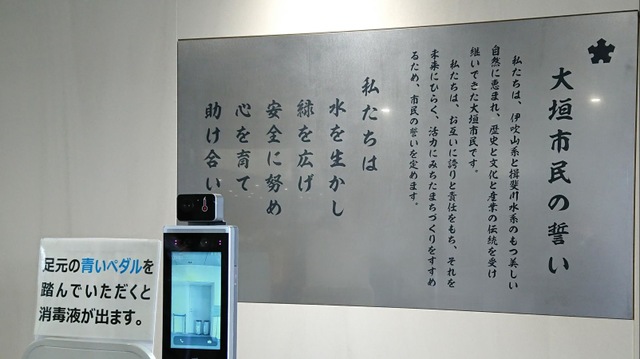 大垣市民の誓い
私たちは、伊吹山系と揖斐川水系のもつ美しい
自然に恵まれ、歴史と文化と産業の伝統を受け
継いできた大垣市民です。
私たちは、お互いに誇りと責任をもち、それを
未来にひらく、活力にみちたまちづくりをすすめ
るため、市民の誓いを定めます。
私たちは
水を生かし
緑を広げ
安全に努め
心を育て
助け合い
足元の青いペダルを
踏んでいただくと
消毒液が出ます。